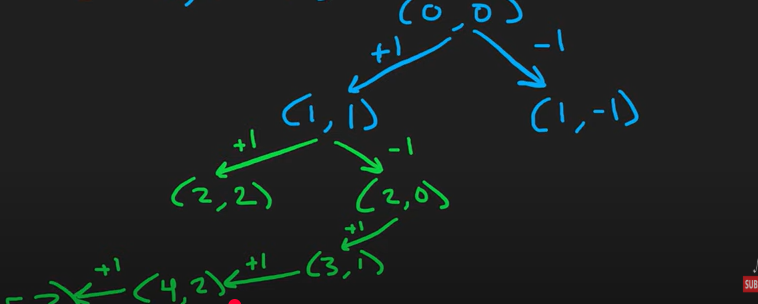 (0, 0)
+1 -1
(1, 1) (1, -1)
+1 -1
(2, 2) (2, 0)
+1
+1 +1 (3, 1)
(4, 2)
SUB